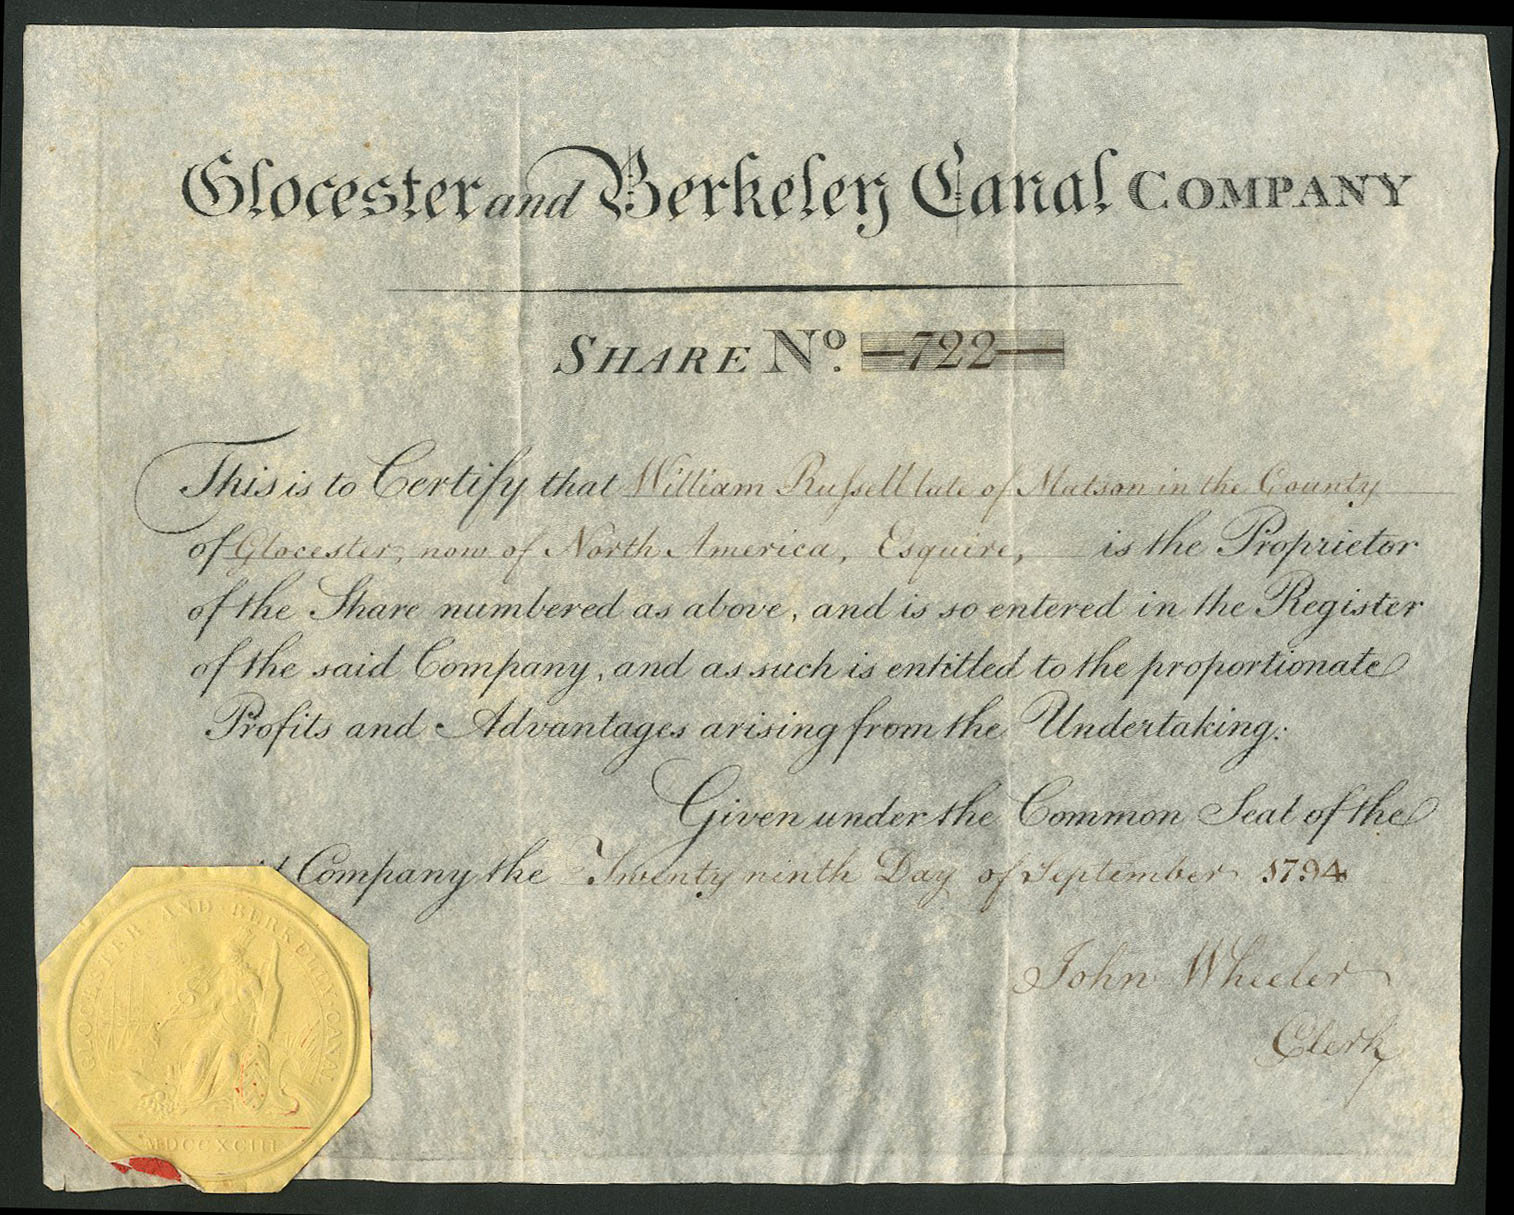 Glocester and Berkeley Canal COMPANY
SHARE No. 722
This is to Certify that William Russell late of Matson in the County
of Glocester, now of North America, Esquire, is the Proprietor
of the Share numbered as above, and is so entered in the Register
of the said Company, and as such is entitled to the proportionate
Profits and Advantages arising from the Undertaking.
Given under the Common Seal of the
Company the Twenty ninth Day of September 1794
John Wheeler
Clerk
GLOCESTER AND BERKELEY CANAL
MDCCXCIII